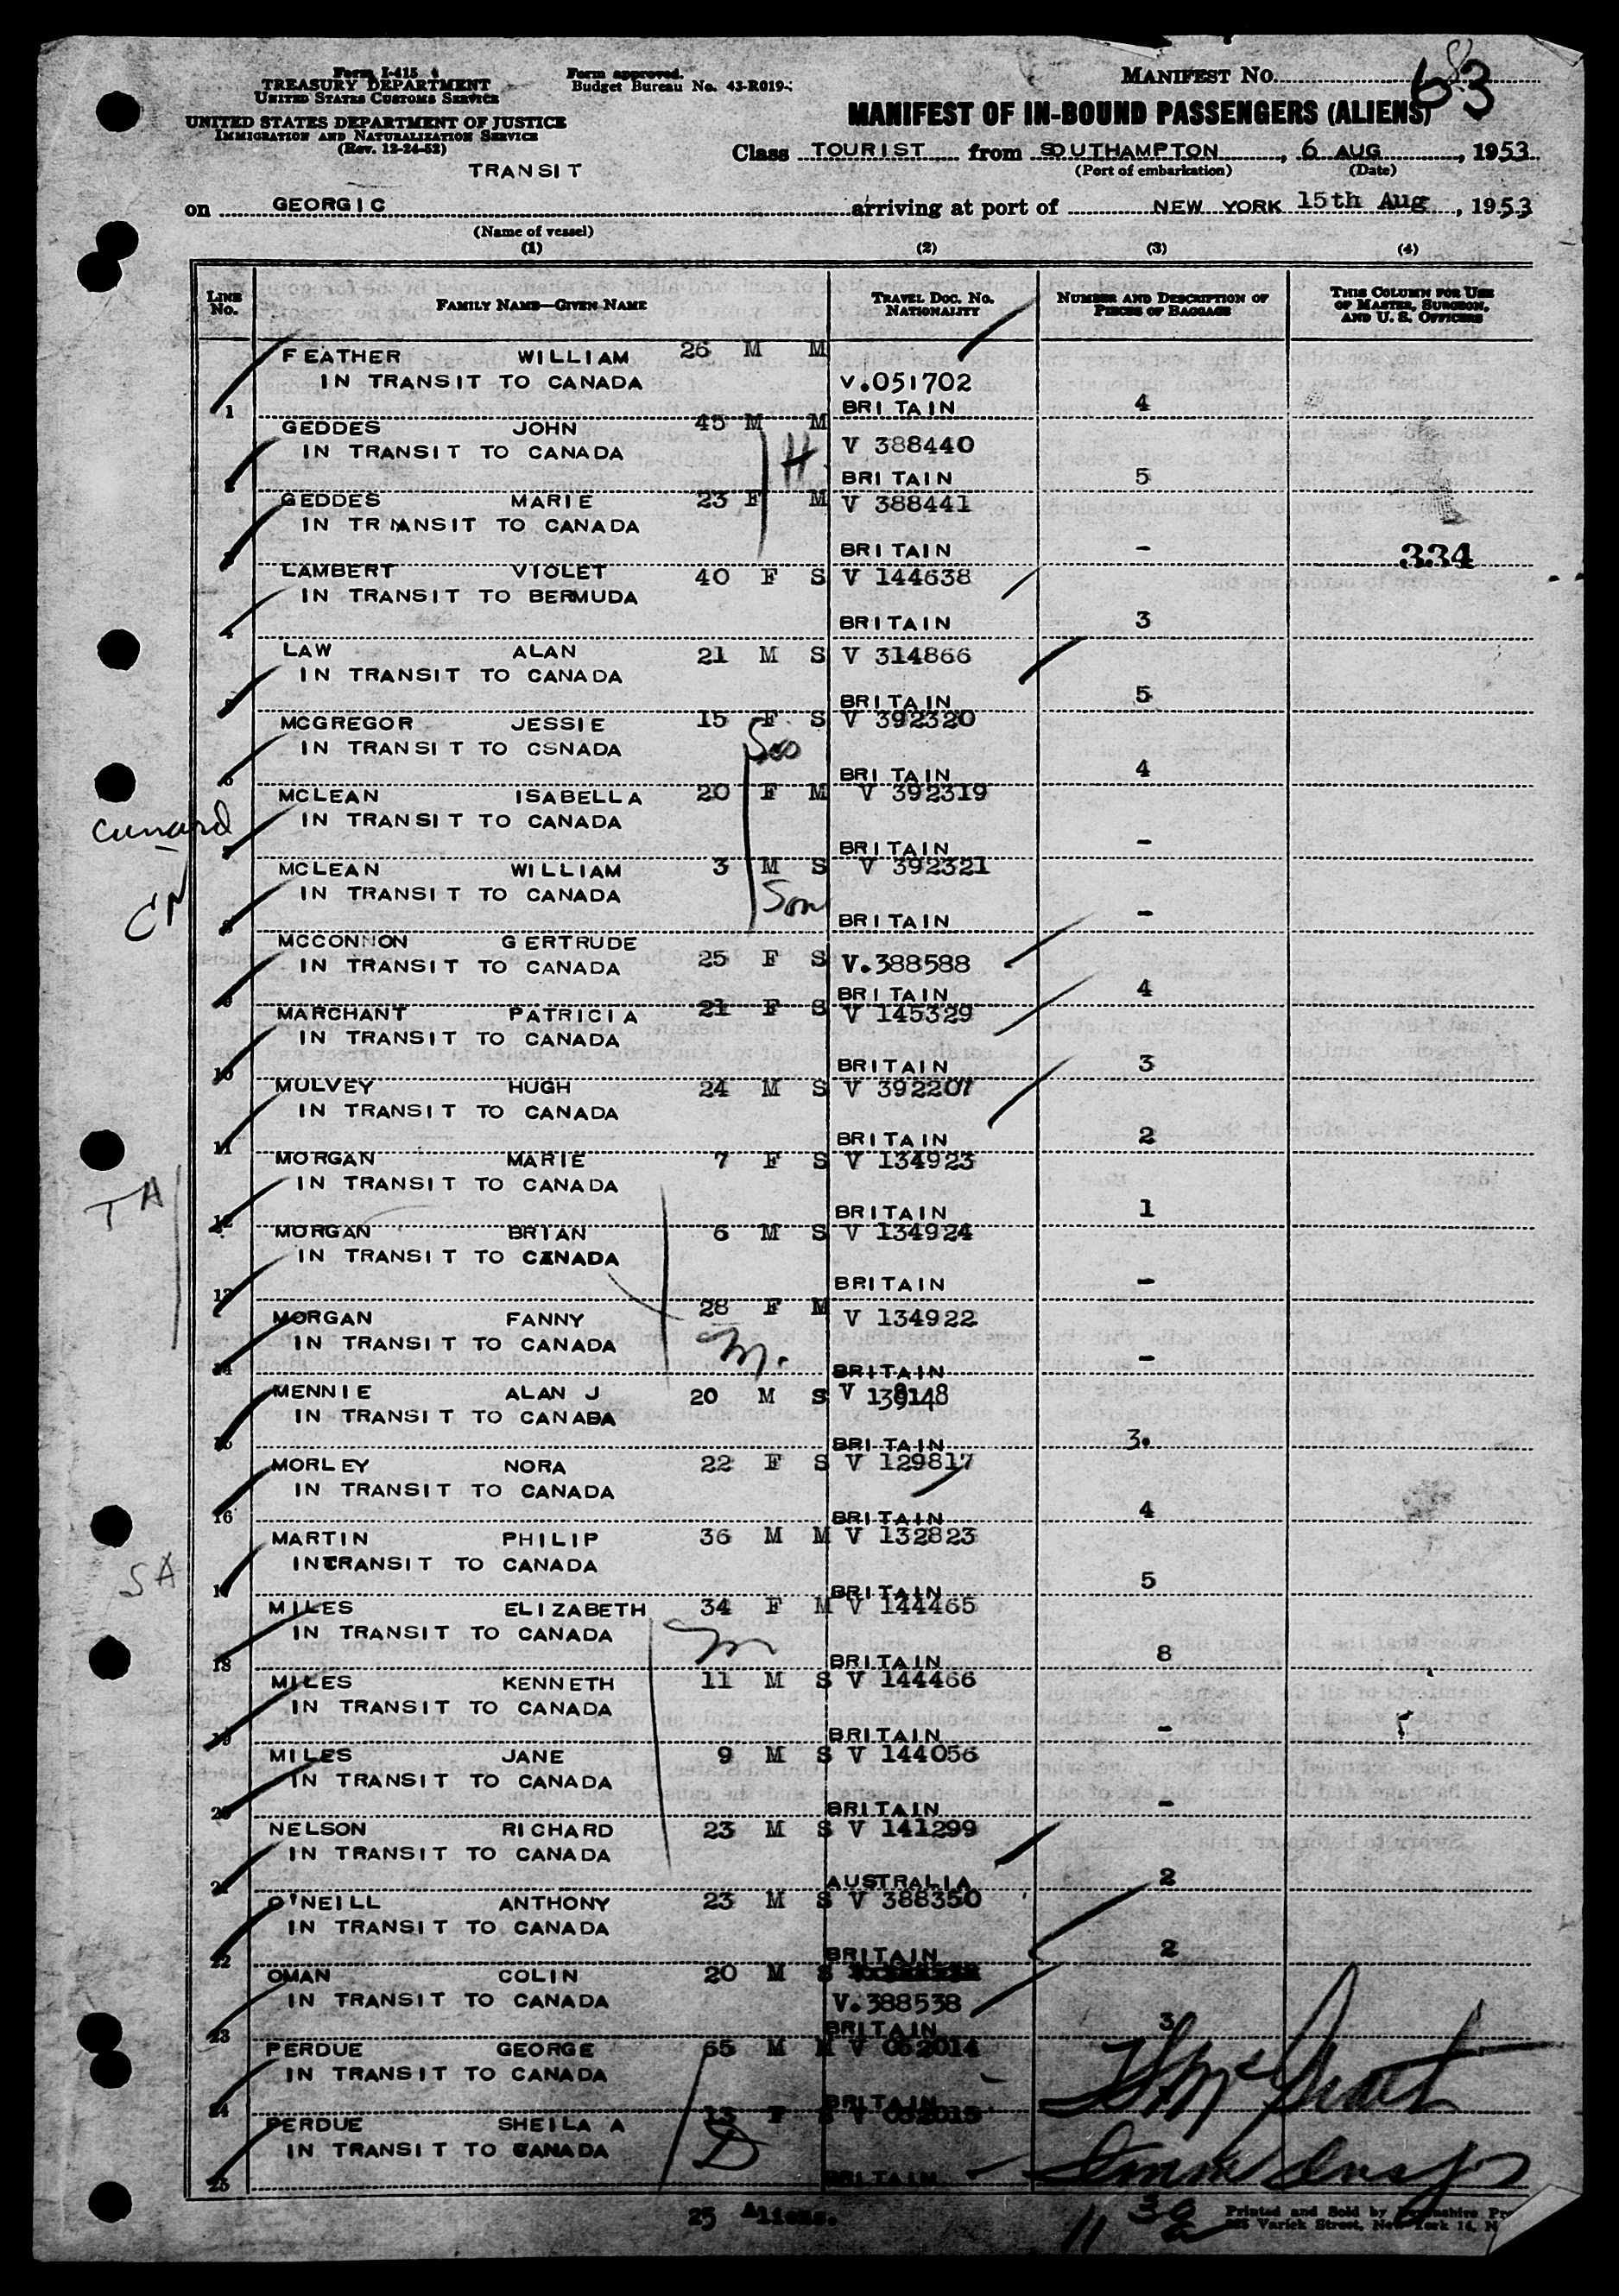 Form I-415
TREASURY DEPARTMENT
UNITED STATES CUSTOMS SERVICE
UNITED STATES DEPARTMENT OF JUSTICE
IMMIGRATION AND NATURALIZATION SERVICE
(Rev. 12-24-52)
TRANSIT
Form approved.
Budget Bureau No. 43-R019-
MANIFEST NO. 63
MANIFEST OF IN-BOUND PASSENGERS (ALIENS)
Class TOURIST from SOUTHAMPTON, 6 AUG, 1953
(Port of embarkation) (Date)
on GEORGIC arriving at port of NEW YORK 15th Aug, 1953
(Name of vessel)
(1) (2) (3) (4)
LINE NO. FAMILY NAME—GIVEN NAME TRAVEL DOC. NO. NATIONALITY NUMBER AND DESCRIPTION OF PIECES OF BAGGAGE THIS COLUMN FOR USE OF MASTER, SURGEON, AND U. S. OFFICERS
FEATHER WILLIAM 26 M M
IN TRANSIT TO CANADA V.051702
1 BRITAIN 4
GEDDES JOHN 45 M M
IN TRANSIT TO CANADA H V 388440
2 BRITAIN 5
GEDDES MARIE 23 F M V 388441
IN TRANSIT TO CANADA
3 BRITAIN - 334
LAMBERT VIOLET 40 F S V 144638
IN TRANSIT TO BERMUDA
4 BRITAIN 3
LAW ALAN 21 M S V 314866
IN TRANSIT TO CANADA
5 BRITAIN 5
MCGREGOR JESSIE 15 F S V 392320
IN TRANSIT TO CSNADA
6 BRITAIN 4
MCLEAN ISABELLA 20 F M V 392319
Cunard IN TRANSIT TO CANADA
7 BRITAIN -
MCLEAN WILLIAM 3 M S V 392321
IN TRANSIT TO CANADA Son
8 BRITAIN -
MCCONNON GERTRUDE
IN TRANSIT TO CANADA 25 F S V.388588
9 BRITAIN 4
MARCHANT PATRICIA 21 F S V 145329
IN TRANSIT TO CANADA
10 BRITAIN 3
MULVEY HUGH 24 M S V 392207
IN TRANSIT TO CANADA
11 BRITAIN 2
MORGAN MARIE 7 F S V 134923
TA IN TRANSIT TO CANADA
12 BRITAIN 1
MORGAN BRIAN 6 M S V 134924
IN TRANSIT TO CANADA
13 BRITAIN -
MORGAN FANNY 28 F M V 134922
IN TRANSIT TO CANADA m.
14 BRITAIN -
MENNIE ALAN J 20 M S V
IN TRANSIT TO CANADA
15 BRITAIN 3.
MORLEY NORA 22 F S V 129817
IN TRANSIT TO CANADA
16 BRITAIN 4
MARTIN PHILIP 36 M M V 132823
SA IN TRANSIT TO CANADA
17 BRITAIN 5
MILES ELIZABETH 34 F M V 144465
IN TRANSIT TO CANADA m
18 BRITAIN 8
MILES KENNETH 11 M S V 144466
IN TRANSIT TO CANADA
19 BRITAIN -
MILES JANE 9 M S V 144056
IN TRANSIT TO CANADA
20 BRITAIN -
NELSON RICHARD 23 M S V 141299
IN TRANSIT TO CANADA
21 AUSTRALIA 2
O'NEILL ANTHONY 23 M S V 388350
IN TRANSIT TO CANADA
22 BRITAIN 2
OMAN COLIN 20 M S
IN TRANSIT TO CANADA V.388538
23 BRITAIN 3
PERDUE GEORGE 65 M M V 052014
IN TRANSIT TO CANADA
24 BRITAIN
PERDUE SHEILA A 13 F S V 052015
IN TRANSIT TO CANADA D
25 BRITAIN
25 Aliens.
Printed and Sold by
Varick Street, New York 14, N